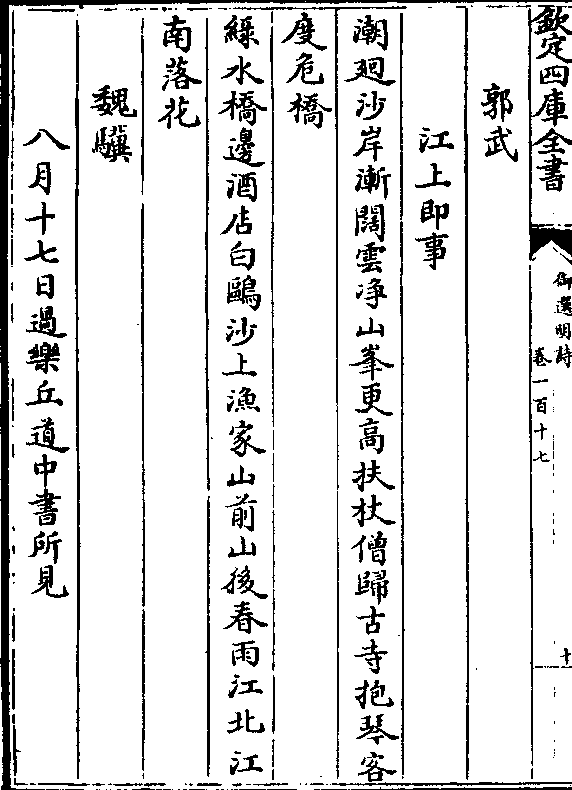 欽定四庫全書
御選明詩
卷一百十七
十
郭武
江上即事
潮廻沙岸漸闊雲净山峯更高扶杖僧歸古寺抱琴客
度危橋
綠水橋邊酒店白鷗沙上漁家山前山後春雨江北江
南落花
魏驥
八月十七日過樂丘道中書所見